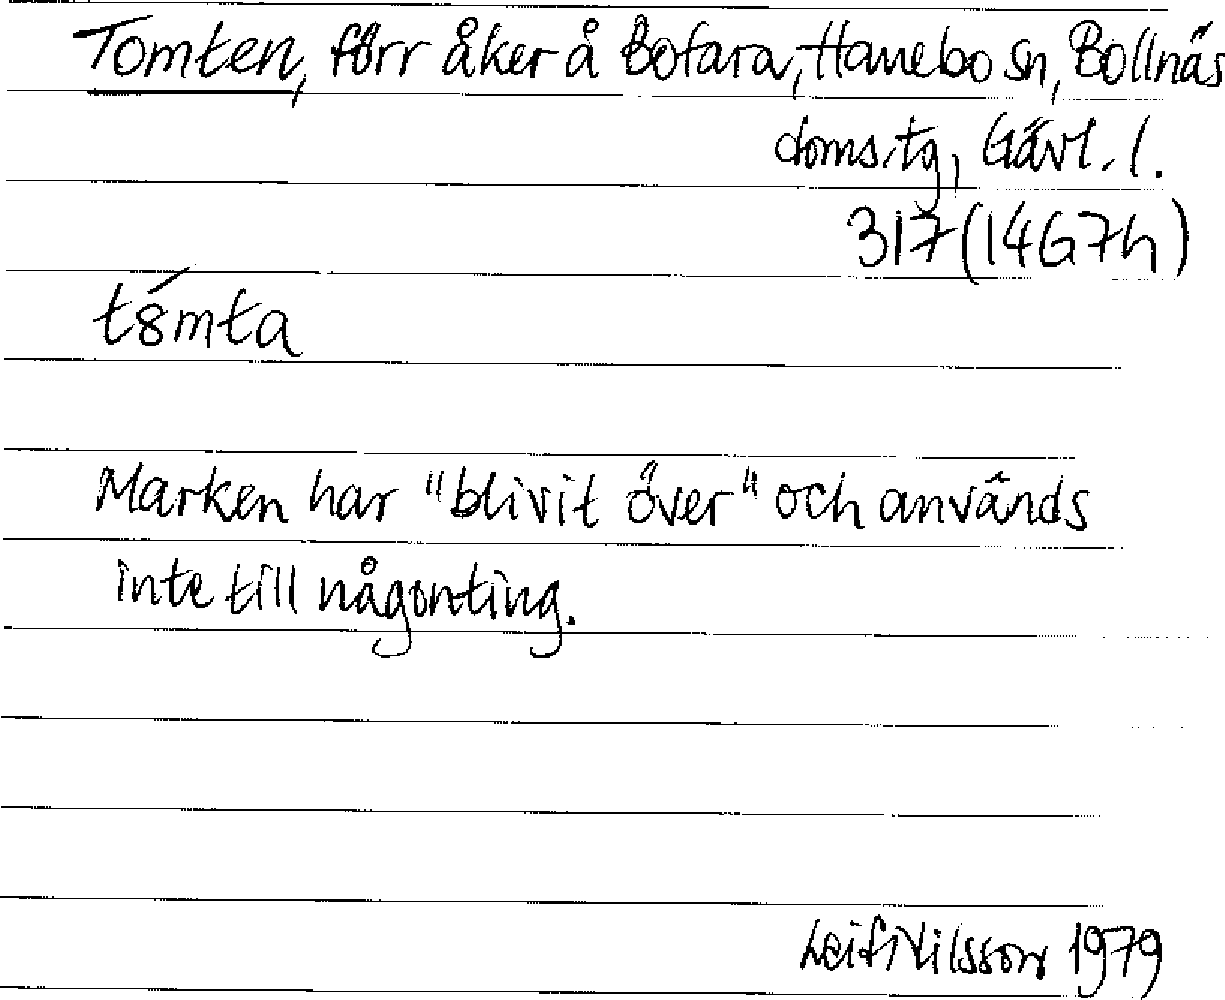 Tomten, förr åker å Bofara, Hanebo sn, Bollnäs
doms.tg, Gävl. l.
317 (14G7h)
t8́mta
Marken har "blivit över" och används
inte till någonting.
Leif Nilsson 1979